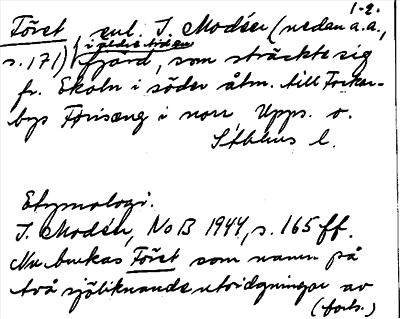 1-2.
Föret, enl. I. Modéer (nedan a.a.,
i äldre tiden
s. 171) fjärd, som sträckte sig
fr. Ekoln i söder åtm. till Forkar-
bys i norr, Upps. o.
Sthlms l.
Etymologi.
I. Modéer, NoB 1944, s. 165 ff.
Nu brukas Föret som namn på
två sjöliknande utvidgningar av
(forts.)